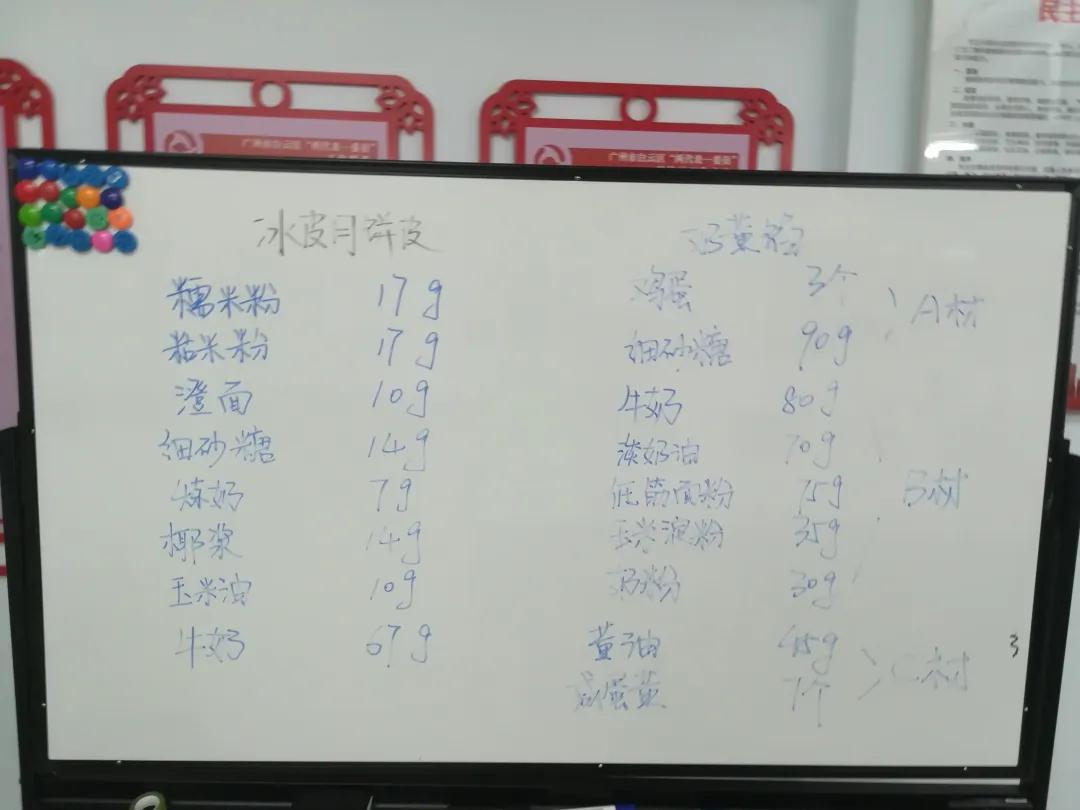 民主
广州市白云区“两代表一委员”
广州市白云区“两代表一委员”
冰皮月饼皮
糯米粉 17g
粘米粉 17g
澄面 10g
细砂糖 14g
炼奶 7g
椰浆 14g
玉米油 10g
牛奶 67g
奶黄馅
鸡蛋 3个
细砂糖 90g
A材
牛奶 80g
淡奶油 70g
低筋面粉 75g
玉米淀粉 35g
奶粉 30g
B材
黄油 45g
咸蛋黄 7个
C材
3